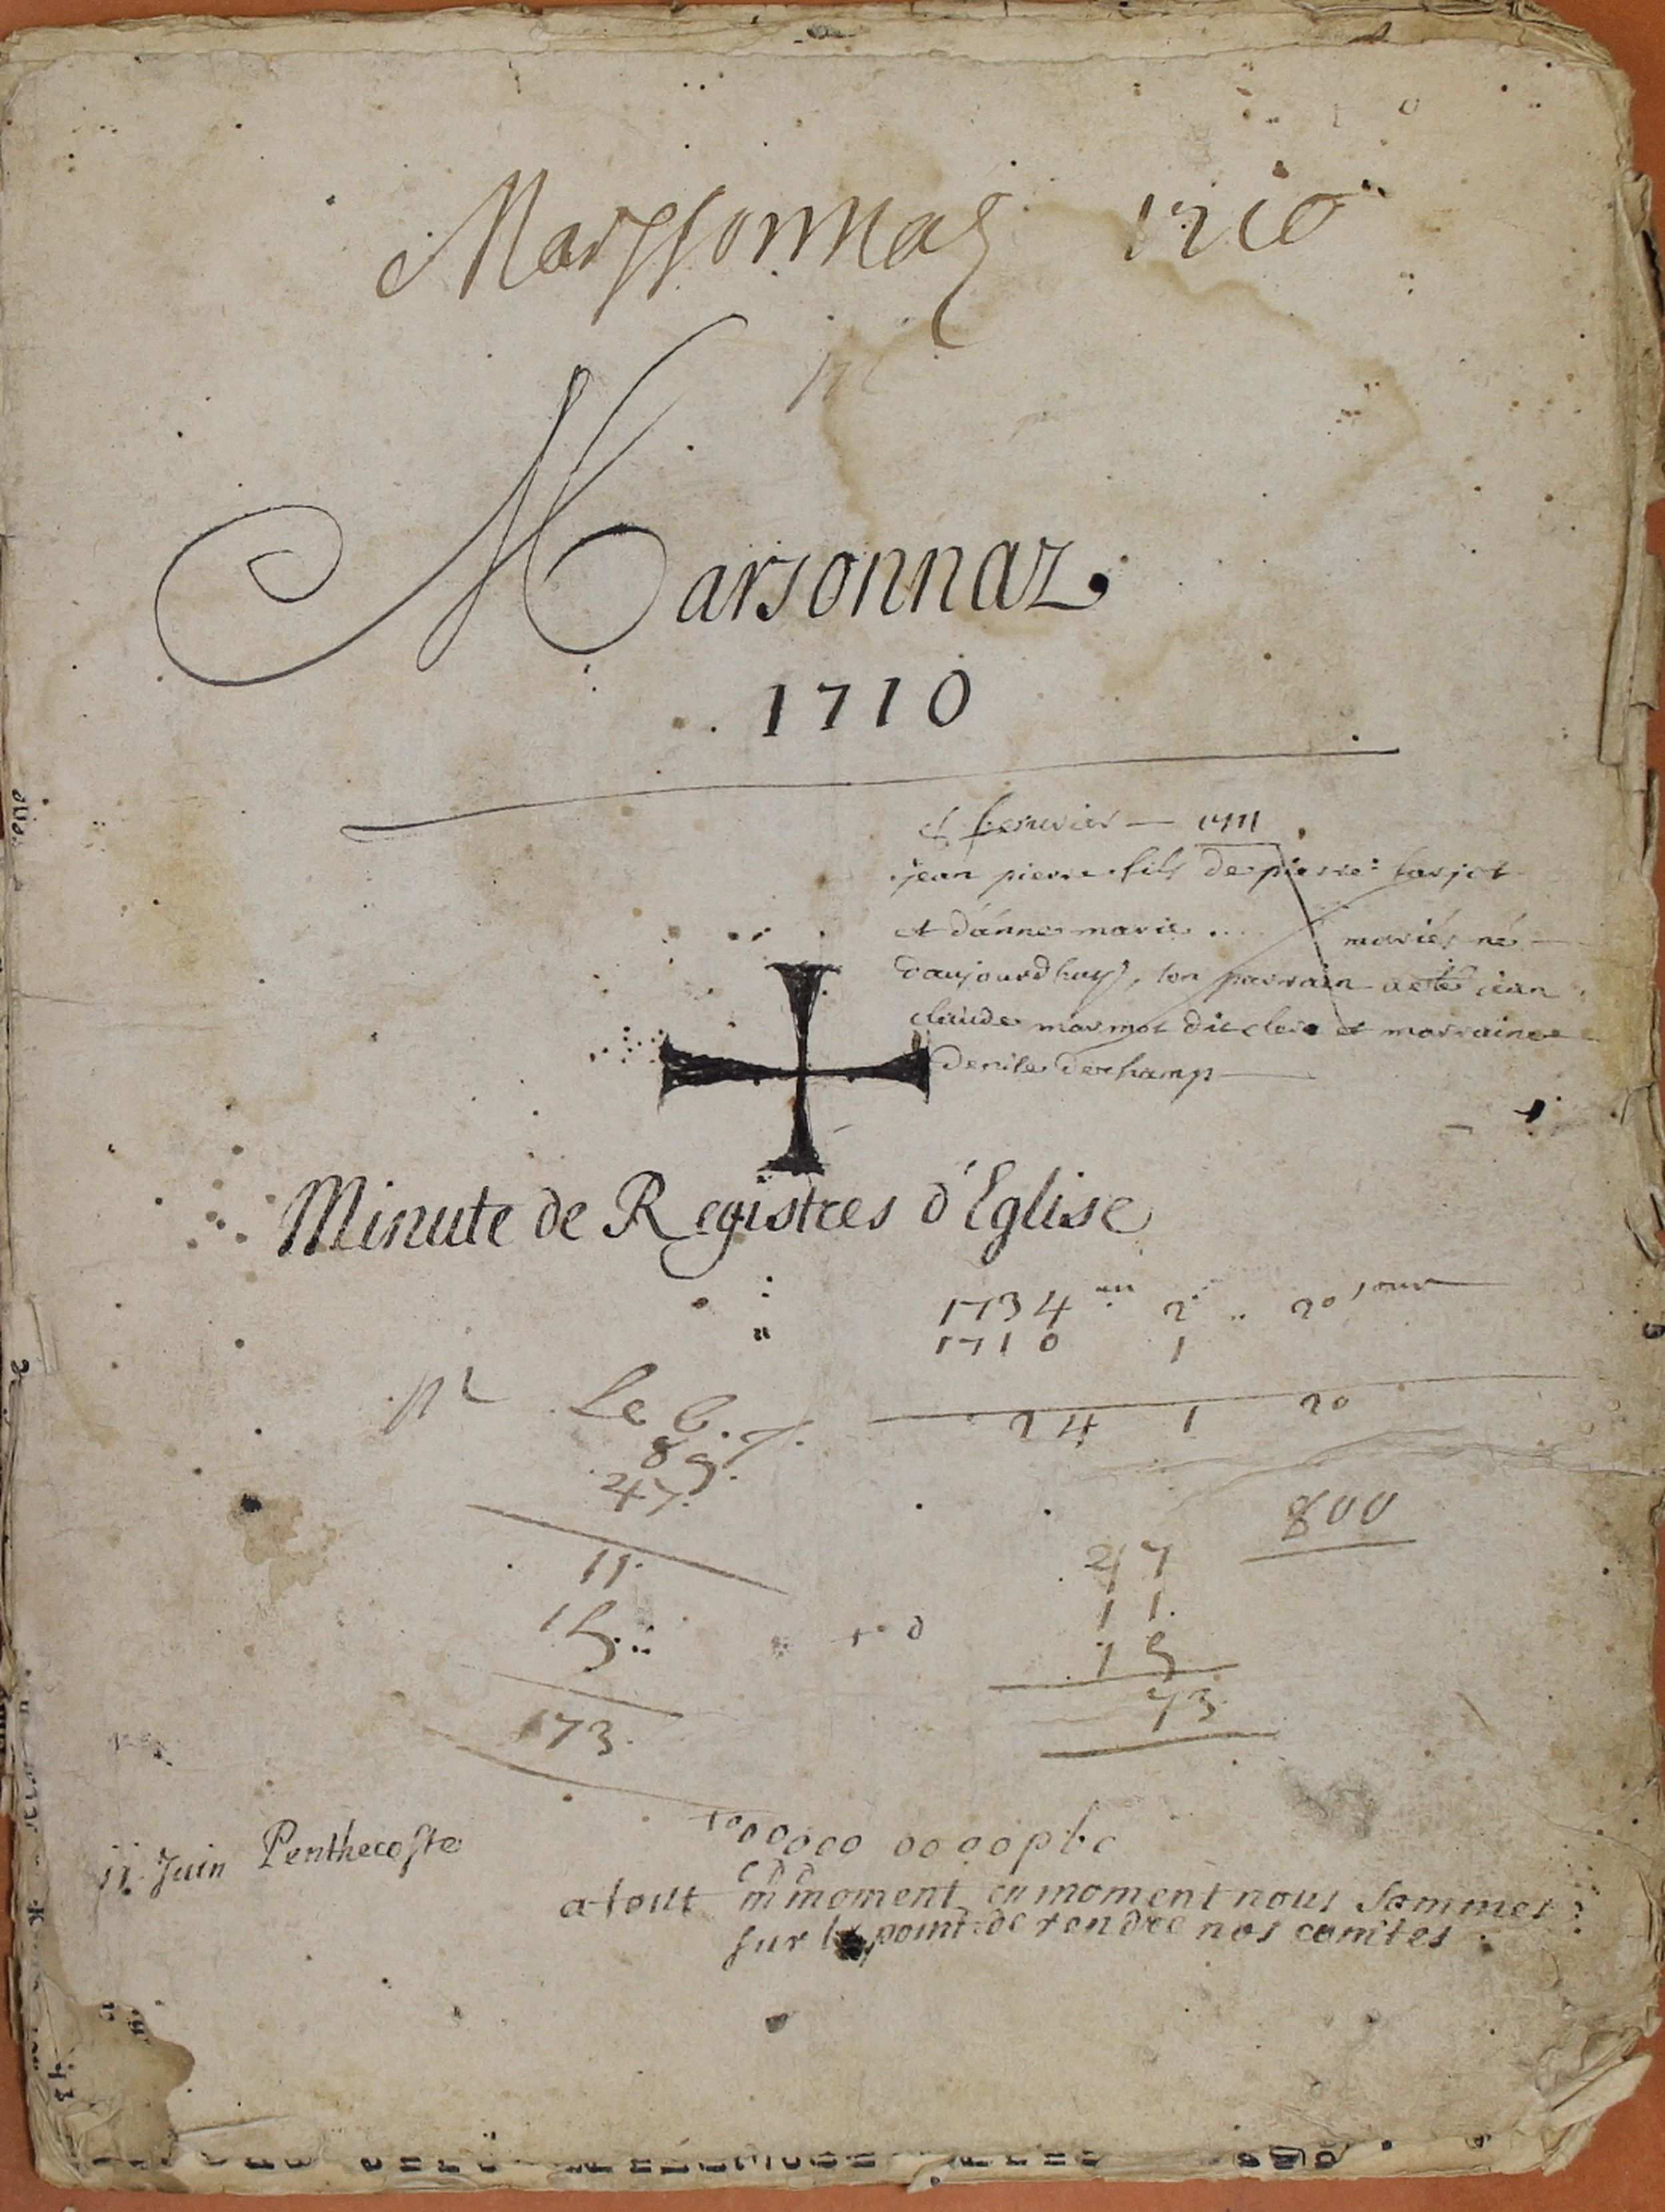 Marssonnas 1710
Marsonnaz.
1710
ferurier — 1711
jean pierre fils de pierre farjot
et d'anne marie .... mariés né
d'aujourdhuy, son parrain a eté jean
claude marmot dit clerc et marraine
denise deschamps
Minute de Registres d'Eglise
1734 an 2 .. 20 jour
1710 1
24 1 20
Le 6.
89.
47.
11.
15.
173.
800
47
11.
15
73.
11. Juin Penthecoste
000000 0000pbc
a tout m moment en moment nous sommes
sur le point de rendre nos comtes